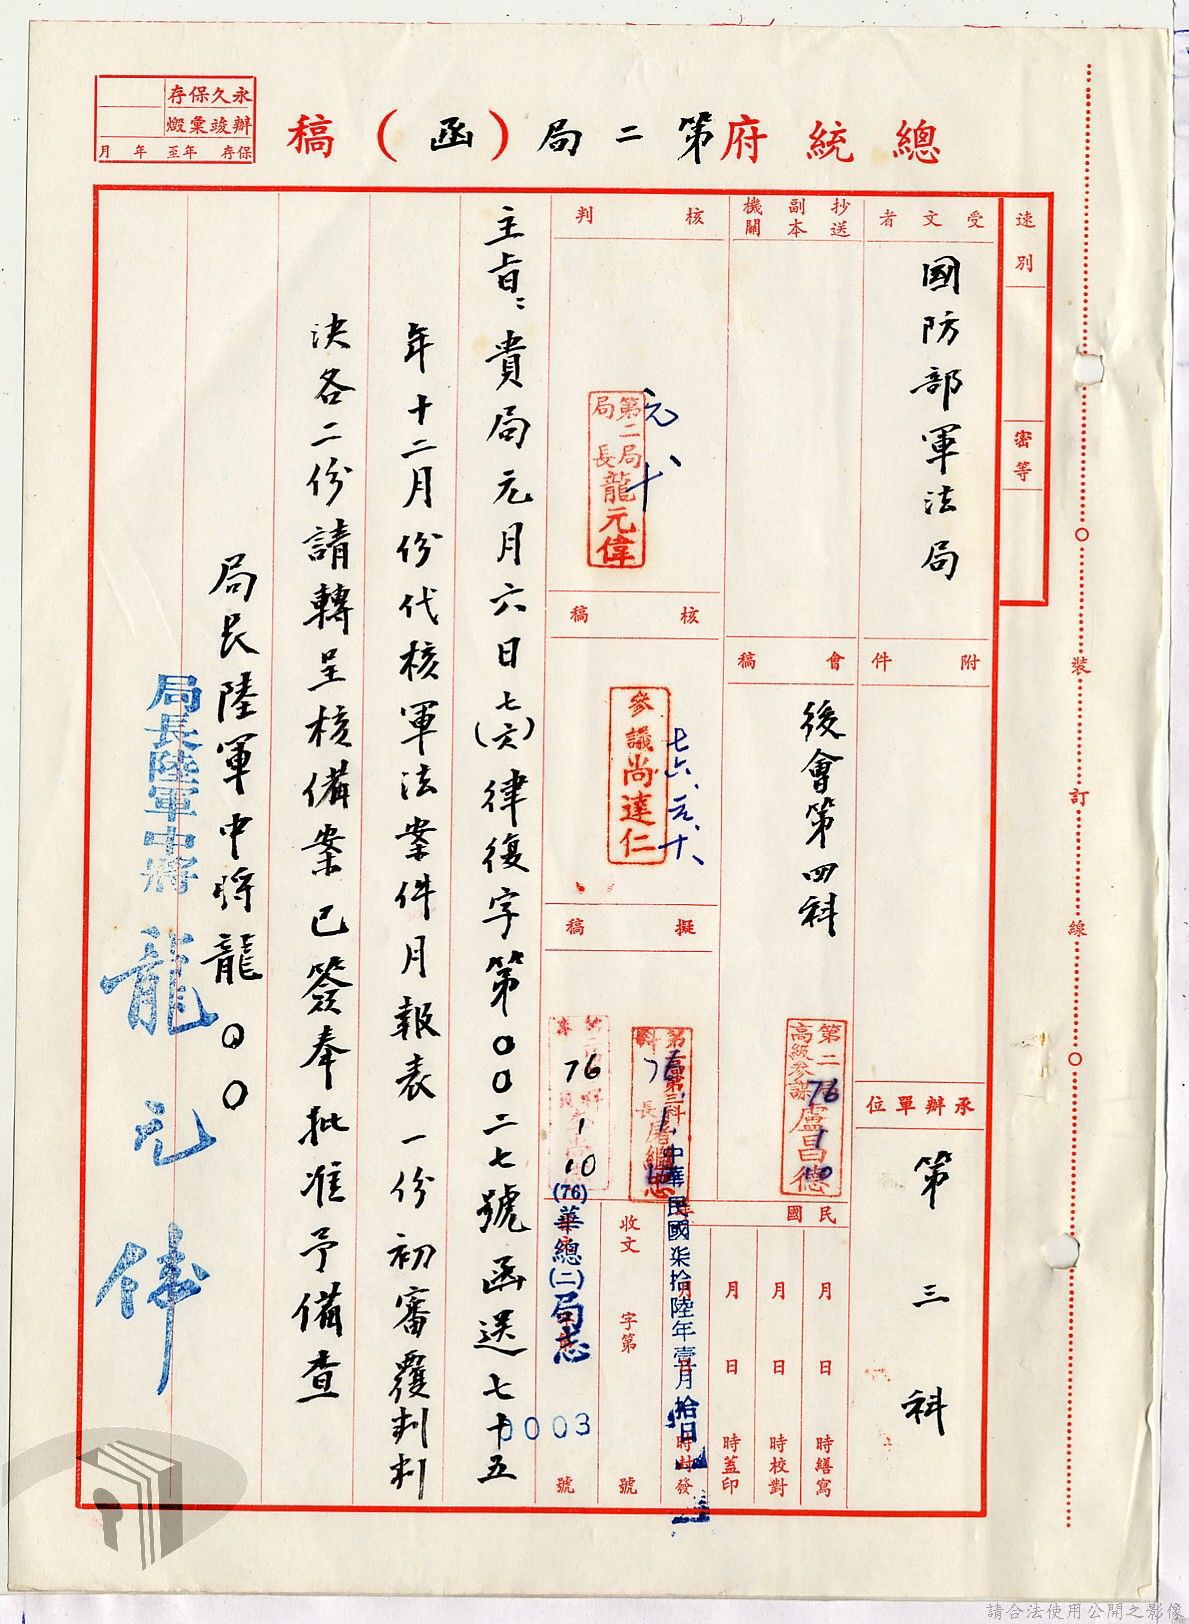 總統府第二局(函)稿
永久保存
辦竣彙燬
保存 年至 年 月
速別
密等
受文者
國防部軍法局
抄送副本機關
附件
會稿
後會第四科
承辦單位
第三科
核判
第二局局長龍元偉
元、十
核稿
參議尚達仁
七六、元、十、
擬稿
第二局高級參謀盧昌德
76 1 10
76
76 1 10
主旨:貴局元月六日七(六)律復字第00二七號函送七十五
年十二月份代核軍法案件月報表一份初審覆判判
決各二份請轉呈核備案已簽奉批准予備查
局長陸軍中將龍00
局長陸軍中將 龍元偉
民國
月 日 時繕寫
月 日 時校對
月 日 時蓋印
月 日 時封發
中華民國柒拾陸年壹月拾日
收文 字第 號
(76)華總(二)局志
0003
號
裝
訂
線
請合法使用公開之影像